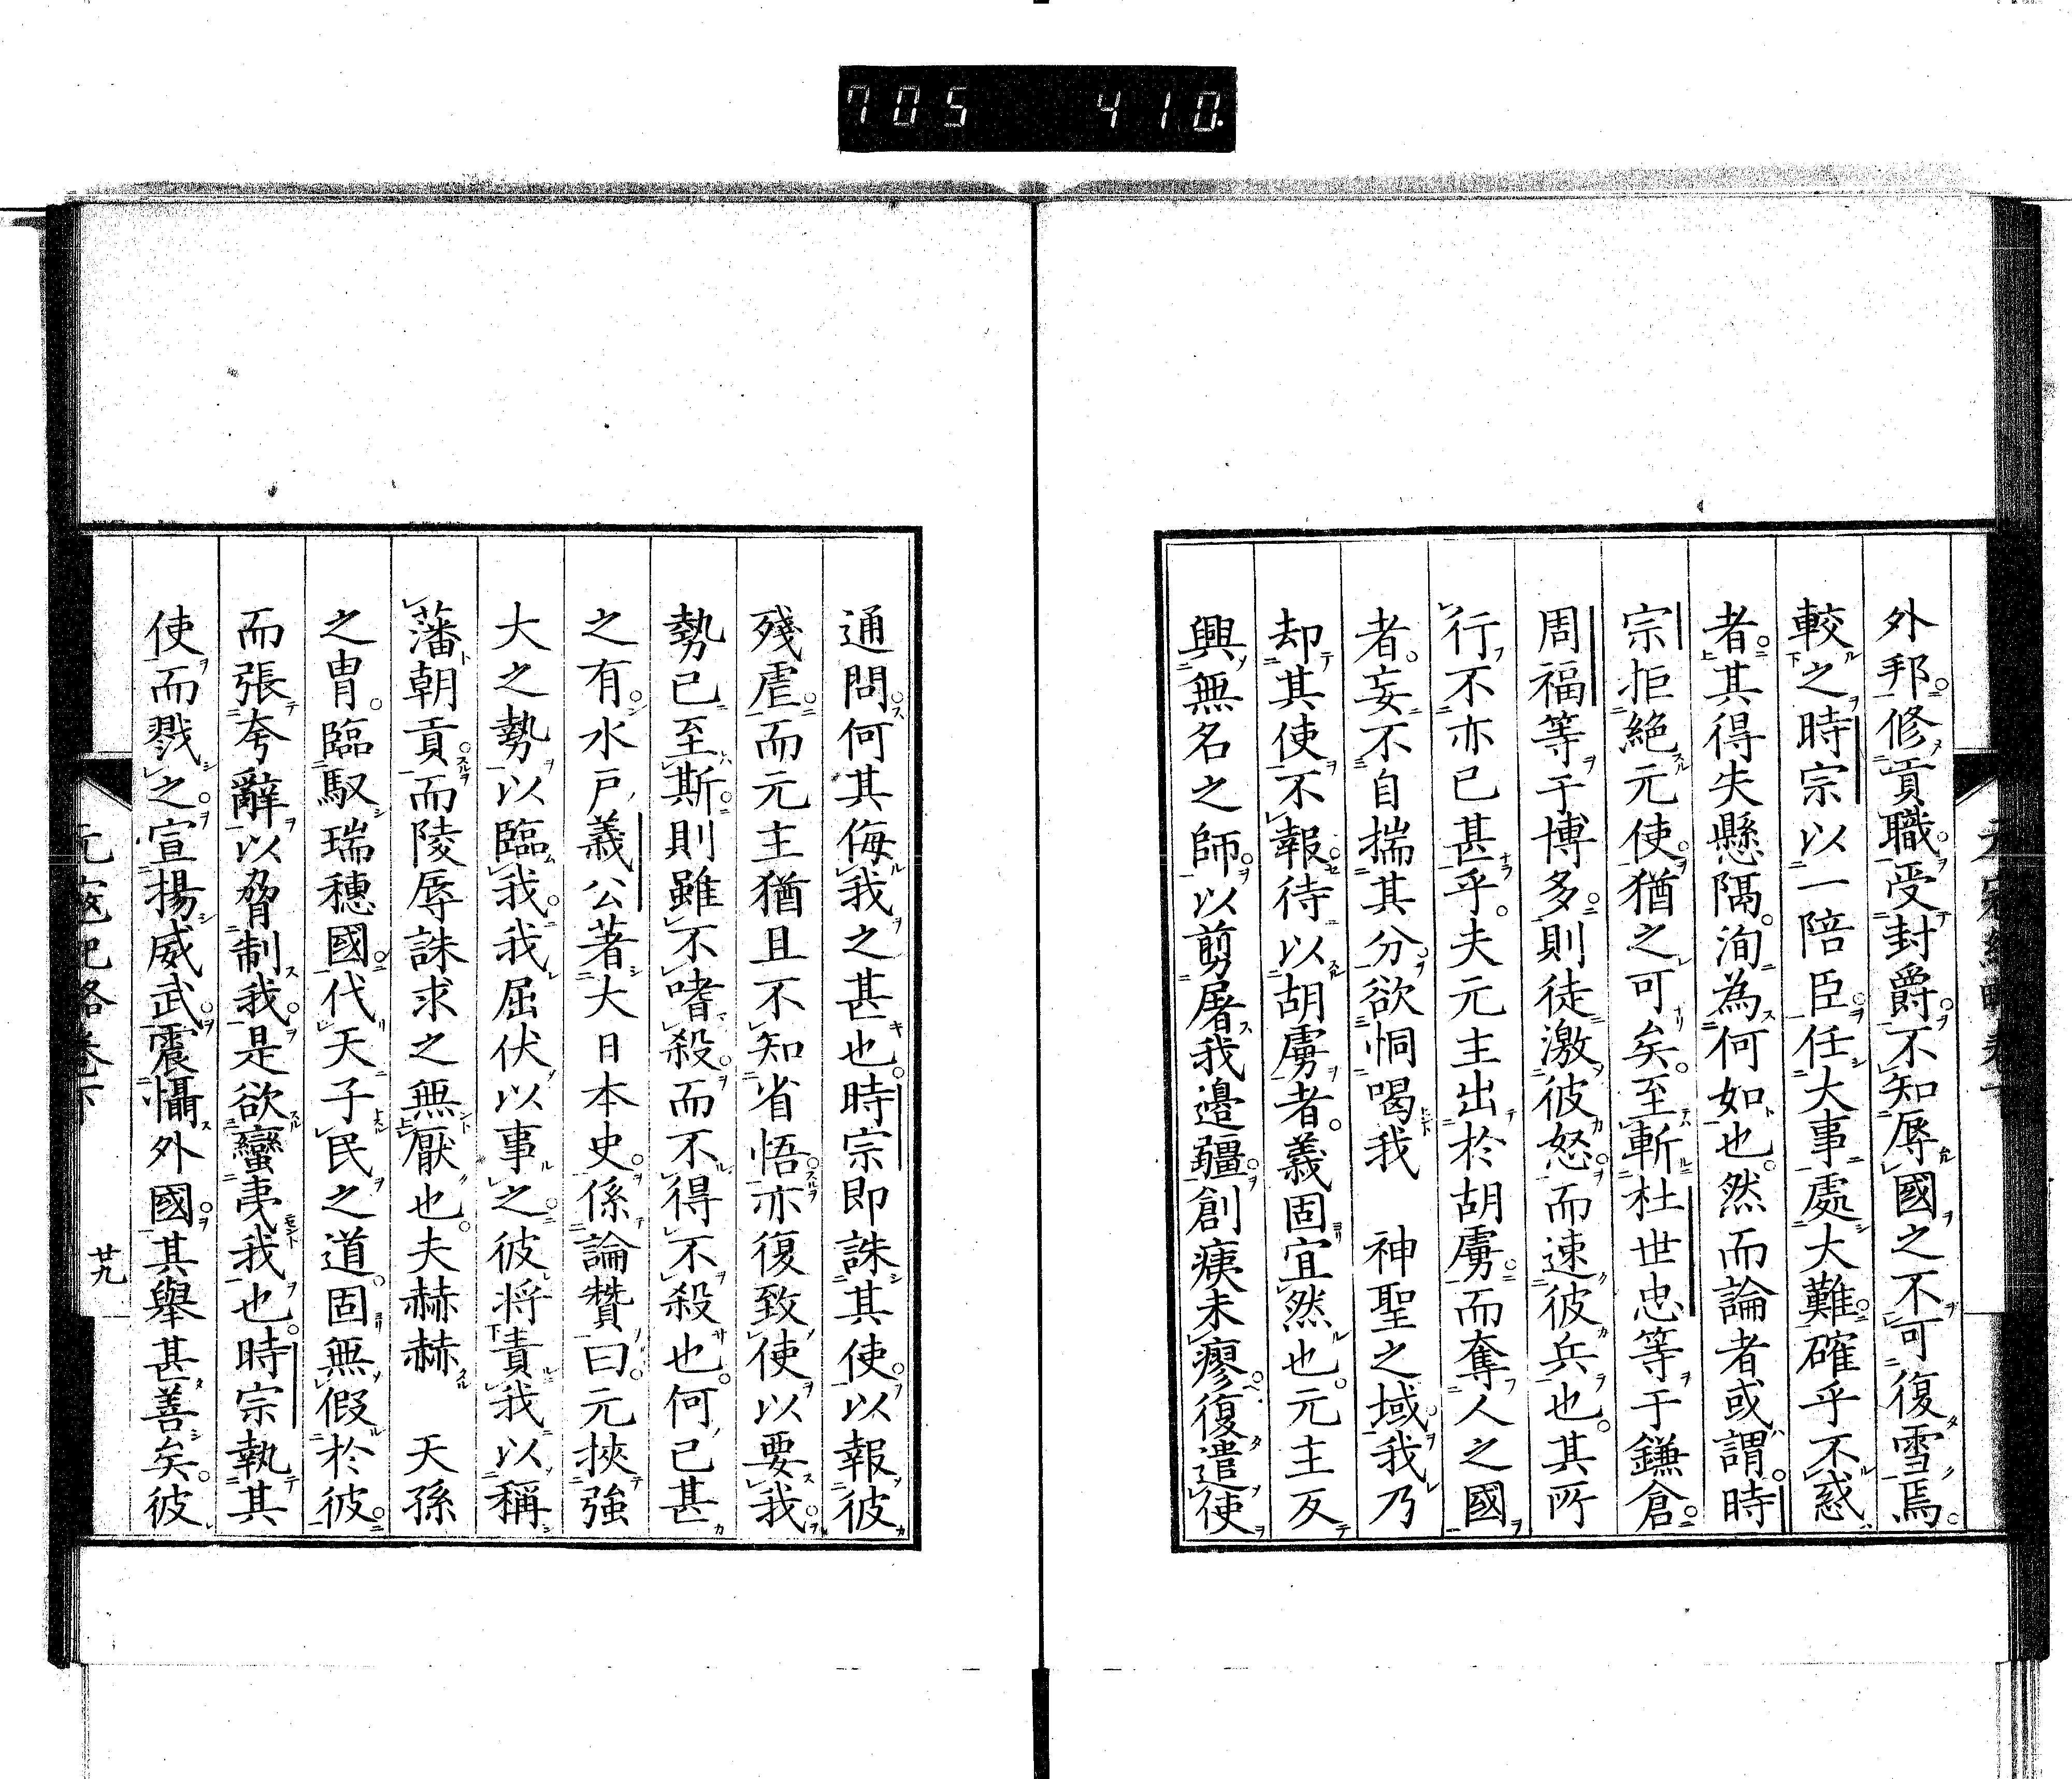 705 410
外邦修貢職受封爵不知辱國之不可復雪焉
較之時宗以一陪臣任大事處大難確乎不惑
者其得失懸隔洵為何如也然而論者或謂時
宗拒絕元使猶之可矣至斬杜世忠等于鎌倉
周福等于博多則徒激彼怒而速彼兵也其所
行不亦已甚乎夫元主出於胡虜而奪人之國
者妄不自揣其分欲恫喝我 神聖之域我乃
却其使不報待以胡虜者義固宜然也元主反
興無名之師以剪屠我邊疆創痍未瘳復遣使
通問何其侮我之甚也時宗即誅其使以報彼
殘虐而元主猶且不知省悟亦復致使以要我
勢已至斯則雖不嗜殺而不得不殺也何已甚
之有水戶義公著大日本史係論贊曰元挾強
大之勢以臨我我屈伏以事之彼將責我以稱
藩朝貢而陵辱誅求之無厭也夫赫赫 天孫
之胄臨馭瑞穗國代天子民之道固無假於彼
而張夸辭以脅制我是欲蠻夷我也時宗執其
使而戮之宣揚威武震懾外國其舉甚善矣彼
元寇紀略卷下 廿九